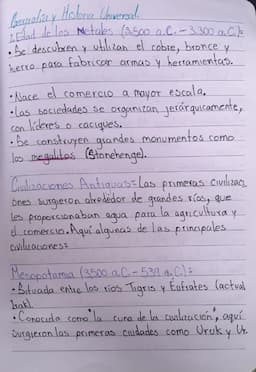 Geografía y Historia Universal
2. Edad de los Metales (3.500 a.C. - 3.300 a.C.):
• Se descubren y utilizan el cobre, bronce y
hierro para fabricar armas y herramientas.
• Nace el comercio a mayor escala.
• Las sociedades se organizan jerárquicamente,
con líderes o caciques.
• Se construyen grandes monumentos como
los megalitos (Stonehenge).
Civilizaciones Antiguas: Las primeras civilizaci
ones surgieron alrededor de grandes ríos, que
les proporcionaban agua para la agricultura y
el comercio. Aquí algunas de las principales
civilizaciones:
Mesopotamia (3500 a.C. - 539 a.C.):
• Situada entre los ríos Tigris y Eufrates (actual
Irak).
• Conocida como "la cuna de la civilización", aquí
surgieron las primeras ciudades como Uruk y Ur.